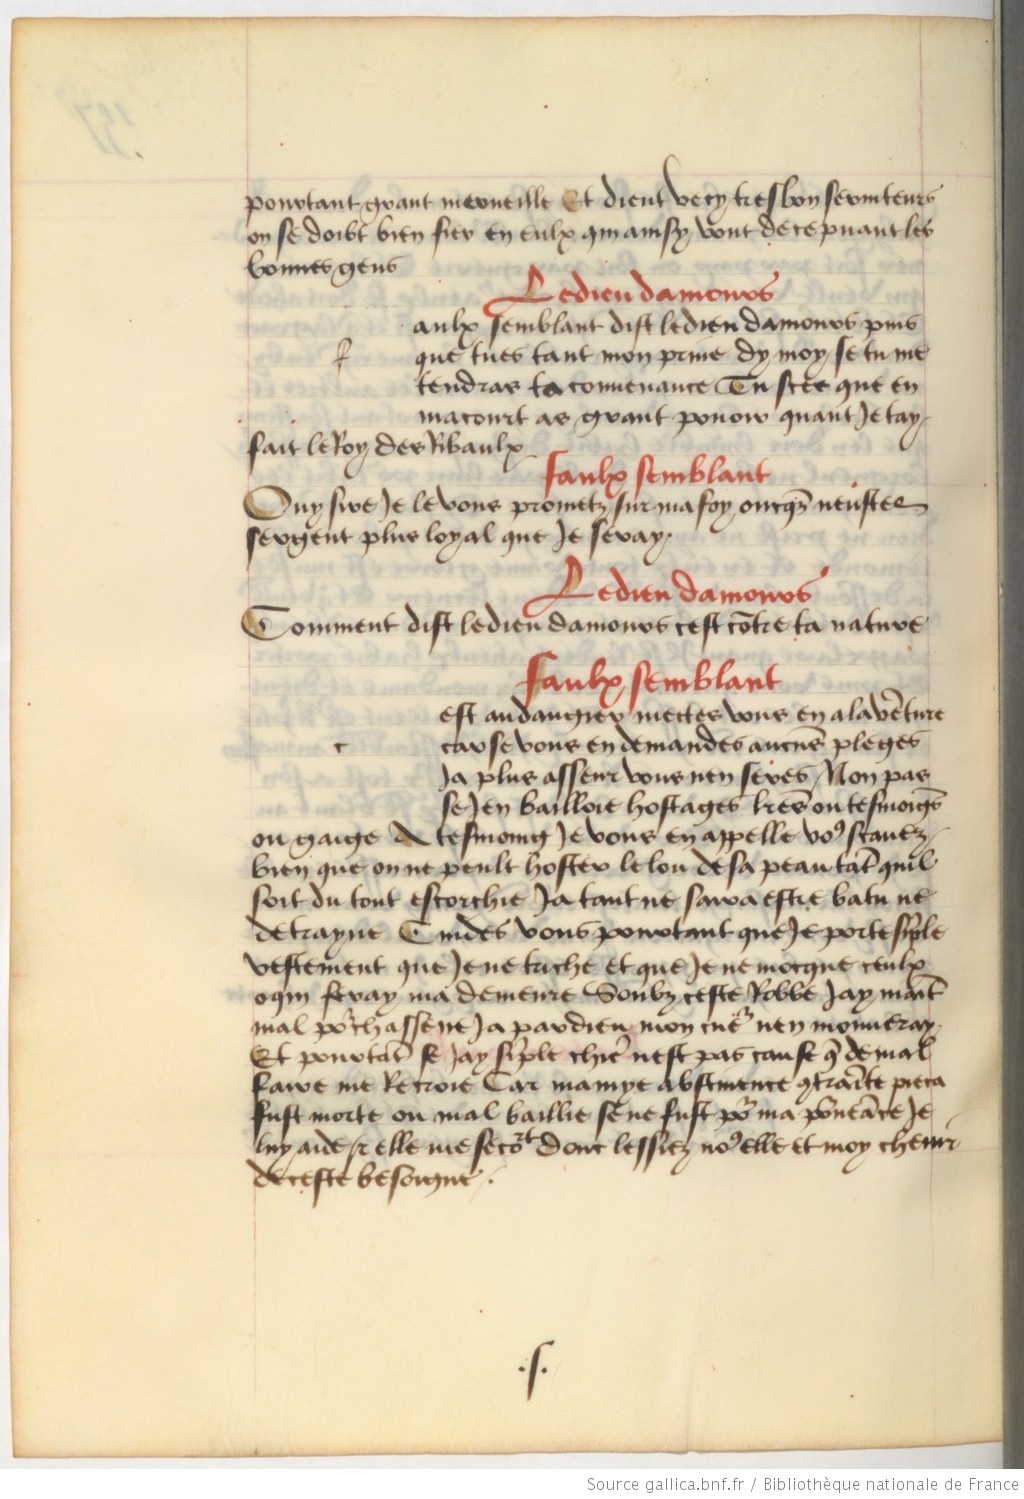 pourtant grant merueille Et dient vecy tresbon seruiteurs
on se doibt bien fier en eulx qui ainsy vont deceuant les
bonnes gens
Le dieu damours
aulx semblant dist le dieu damours puis
f
que tu es tant mon priue dy moy se tu me
tendras ta conuenance Tu sces que en
ma court as grant pouoir quant Je tay
fait le Roy des Ribaulx
Faulx semblant
Ouy sire Je le vous prometz sur ma foy oncq̃s neustes
sergent plus loyal que Je seray.
Le dieu damours
Comment dist le dieu damours cest cõtre ta nature
Faulx semblant
est au dangier mectes vous en a lauẽture
c
car se vous en demandes aucũs pleges
Ja plus asseur vous nen seres Non pas
se Jen bailloie hostages lr̃es ou tesmoigs
ou gaige A tesmoing Je vous en appelle voꝰ scauez
bien que on ne peult hoster le lou de sa peau tãt quil
soit du tout escorchie Ja tant ne saura estre batu ne
detrayne Cuides vous pourtant que Je porte sĩple
vestement que Je ne triche et que Je ne mocque ceulx
feray ma demeure Soubz ceste Robbe Jay maĩt
mal po͛chasse ne Ja par dieu mon cue͛ nen mouueray
Et pourtãt se Jay sĩple chie͛ nest pas cause q̃ de mal
faire me Recroie Car mamye abstinence ꝯtraĩte pieca
fust morte ou mal baillie se ne fust po͛ ma pͦueãce Je
luy aide et elle me seco͛t donc lessiez noꝰ elle et moy cheuir
de ceste besoigne .
.s.
Source gallica.bnf.fr / Bibliothèque nationale de France